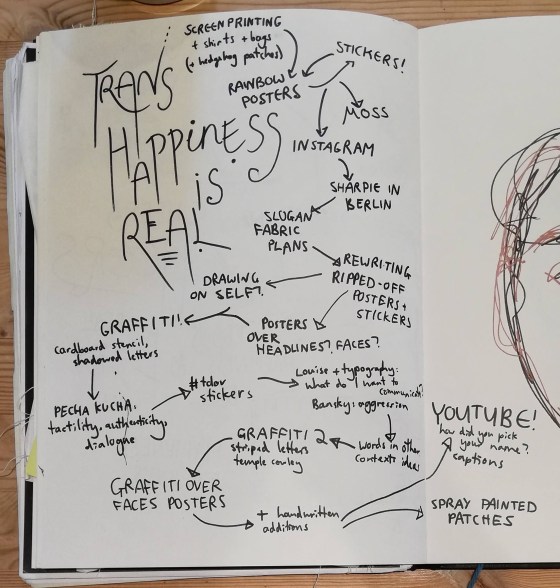 SCREENPRINTING
+ shirts + bags
(+ hedgehog patches)
STICKERS!
RAINBOW
POSTERS
MOSS
TRANS
HAPPINESS
IS
REAL
INSTAGRAM
SHARPIE IN
BERLIN
SLOGAN
FABRIC
PLANS
REWRITING
RIPPED-OFF
POSTERS +
STICKERS
DRAWING
ON SELF?
POSTERS
OVER
HEADLINES? FACES?
GRAFFITI!
cardboard stencil,
shadowed letters
PECHA KUCHA:
tactility, authenticity,
dialogue
#tdov
stickers
Louise + typography:
what do I want to
communicate?
Bansky: aggression
words in other
contexts ideas
GRAFFITI 2
striped letters
temple cowley
GRAFFITI OVER
FACES POSTERS
+ handwritten
additions
YOUTUBE!
how did you pick
your name?
captions
SPRAY PAINTED
PATCHES